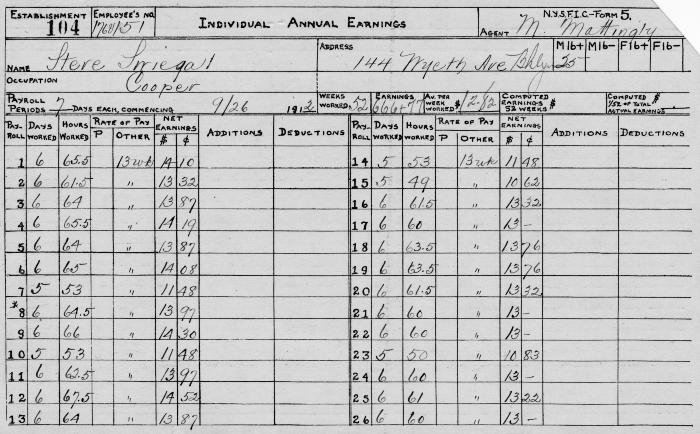 ESTABLISHMENT 104 EMPLOYEE'S NO. 1768/151 INDIVIDUAL ANNUAL EARNINGS N.Y.S.F.I.C.-FORM 5.
AGENT M. Mattingly
NAME Steve ADDRESS 144 Wyeth Ave Bklyn M16+ 35 M16- F16+ F16-
OCCUPATION Cooper
PAYROLL PERIODS 7 DAYS EACH, COMMENCING 9/26 1912 WEEKS WORKED 52 EARNINGS $ 666+77 AV. PER WEEK WORKED $ 12.82 COMPUTED EARNINGS $ 52 WEEKS COMPUTED $ 1/52 OF TOTAL ACTUAL EARNINGS
PAY-ROLL DAYS WORKED HOURS WORKED RATE OF PAY P OTHER NET EARNINGS $ ¢ ADDITIONS DEDUCTIONS PAY-ROLL DAYS WORKED HOURS WORKED RATE OF PAY P OTHER NET EARNINGS $ ¢ ADDITIONS DEDUCTIONS
1 6 65.5 13 wk 14 10 14 5 53 13 wk 11 48
2 6 61.5 " 13 32 15 5 49 " 10 62
3 6 64 " 13 87 16 6 61.5 " 13 32
4 6 65.5 " 14 19 17 6 60 " 13 -
5 6 64 " 13 87 18 6 63.5 " 13 76
6 6 65 " 14 08 19 6 63.5 " 13 76
7 5 53 " 11 48 20 6 61.5 " 13 32
*8 6 64.5 " 13 97 21 6 60 " 13 -
9 6 66 " 14 30 22 6 60 " 13 -
10 5 53 " 11 48 23 5 50 " 10 83
11 6 62.5 " 13 97 24 6 60 " 13 -
12 6 67.5 " 14 52 25 6 61 " 13 22
13 6 64 " 13 87 26 6 60 " 13 -